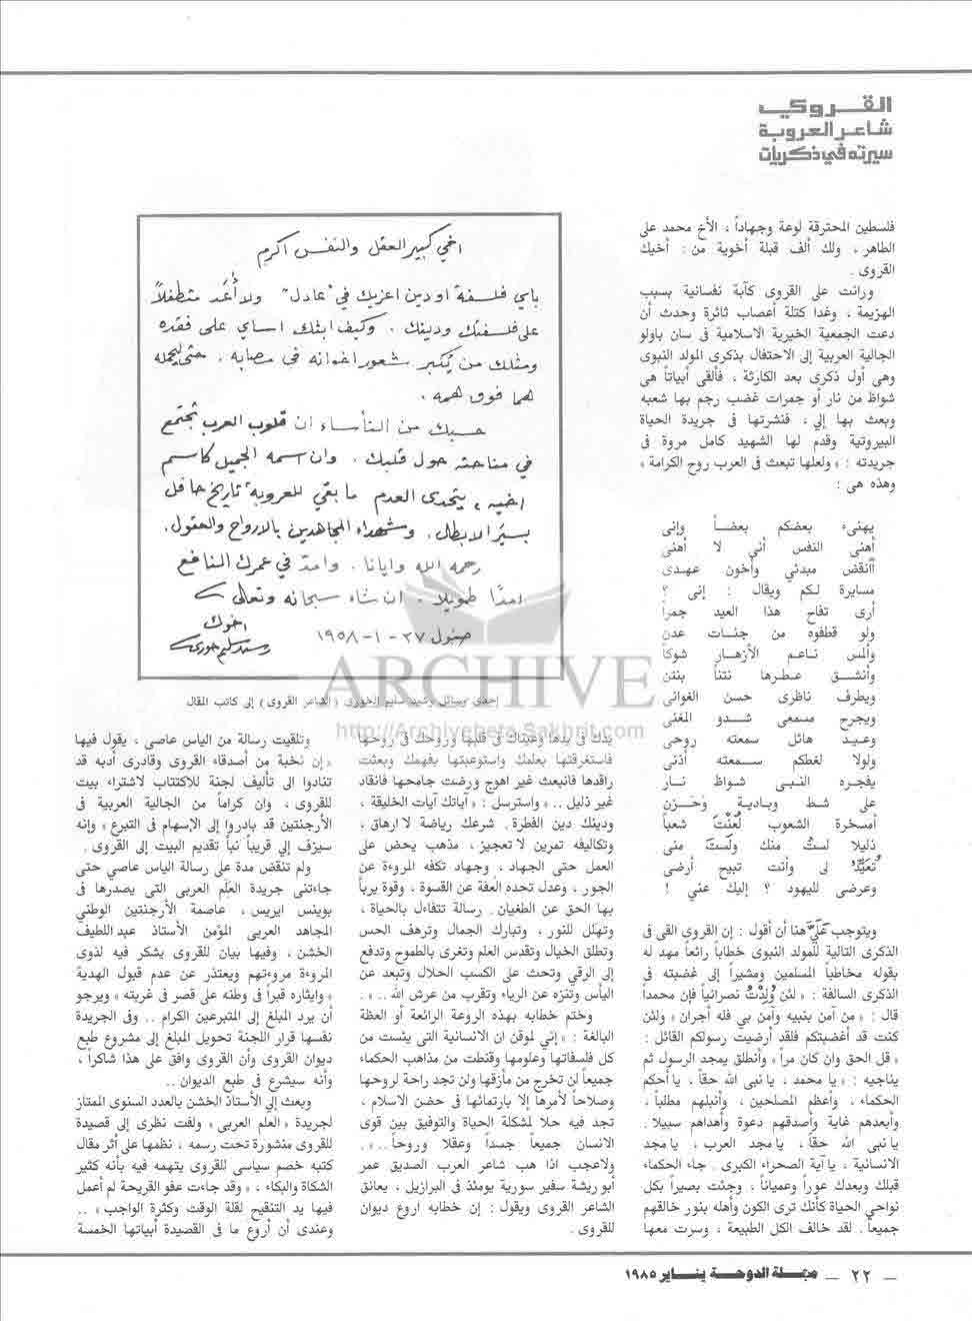 القروي
شاعر العروبة
سيرته في ذكريات
فلسطين المحترقة لوعة وجهاداً ، الأخ محمد على
الطاهر ، ولك ألف قبلة أخوية من : أخيك
القروى .
ورانت على القروى كآبة نفسانية بسبب
الهزيمة ، وغدا كتلة أعصاب ثائرة وحدث أن
دعت الجمعية الخيرية الاسلامية فى سان باولو
الجالية العربية إلى الاحتفال بذكرى المولد النبوى
وهى أول ذكرى بعد الكارثة ، فألقى أبياتاً هى
شواظ من نار أو جمرات غضب رجم بها شعبه
وبعث بها إلي ، فنشرتها فى جريدة الحياة
البيروتية وقدم لها الشهيد كامل مروة فى
جريدته : « ولعلها تبعث فى العرب روح الكرامة »
وهذه هى :
يهنىء بعضكم بعضاً وإنى
أهنى النفس أنى لا أهنى
أأنقض مبدئي وأخون عهدى
مسايرة لكم ويقال : إنى ؟
أرى تفاح هذا العيد جمراً
ولو قطفوه من جنات عدن
وألمس ناعم الأزهار شوكاً
وأنشق عطرها نتناً بنتن
ويطرف ناظرى حسن الغوانى
ويجرح مسمعى شدو المغنى
وعيد هائل سمعته روحى
ولولا لغطكم سمعته أذنى
يفجره النبى شواظ نار
على شط وبادية وحزن
أمسخرة الشعوب لُعنْتَ شعباً
ذليلا لستُ منك ولستَ منى
تُعَيِّدُ لى وأنت تبيح أرضى
وعرضى لليهود ؟ إليك عني !
ويتوجب عليَّ هنا أن أقول : إن القروى القى فى
الذكرى التالية للمولد النبوى خطاباً رائعاً مهد له
بقوله مخاطباً المسلمين ومشيراً إلى غضبته فى
الذكرى السالفة : « لئن وُلِدْتُ نصرانياً فإن محمداً
قال : « من آمن بنبيه وآمن بي فله أجران » ولئن
كنت قد أغضبتكم فلقد أرضيت رسولكم القائل :
« قل الحق وان كان مراً » وأنطلق يمجد الرسول ثم
يناجيه : « يا محمد ، يا نبى الله حقاً ، يا أحكم
الحكماء ، وأعظم المصلحين ، وأنبلهم مطلباً ،
وأبعدهم غاية وأصدقهم دعوة وأهداهم سبيلا .
يا نبى الله حقاً ، يا مجد العرب ، يا مجد
الانسانية ، يا آية الصحراء الكبرى . جاء الحكماء
قبلك وبعدك عوراً وعمياناً ، وجئت بصيراً بكل
نواحي الحياة كأنك ترى الكون وأهله بنور خالقهم
جميعاً . لقد خالف الكل الطبيعة ، وسرت معها
اخي كبير العقل والنفس اكرم
باي فلسفة او دين اعزيك في "عادل" ولا أُعَد متطفلاً
على فلسفتك ودينك . وكيف ابثك اساي على فقده
ومثلك من يكبر شعور اخوانه فى مصابه ، حتى ليحمله
هما فوق همه .
حسبك من التأساء ان قلوب العرب تجتمع
في مناحته حول قلبك . وان اسمه الجميل كاسم
اخيه ، يتحدى العدم ما بقي للعروبة تاريخ حافل
بسِيَر الابطال ، وشهداء المجاهدين بالارواح والعقول .
رحمه الله وايانا . وامدّ في عمرك النافع
امدًا طويلا . ان شاء سبحانه وتعالى
اخوك
رشيد سليم خوري
صنبول ٢٧ -١- ١٩٥٨
إحدى رسائل رشيد سليم الخورى (الشاعر القروى) إلى كاتب المقال
ARCHIVE
http://Archivebeta.Sakhrit.com
يدك فى يدها وعيناك فى قلبها وروحك فى روحها
فاستغرقتها بعلمك واستوعبتها بفهمك وبعثت
راقدها فانبعث غير اهوج ورضت جامحها فانقاد
غير ذليل .. » واسترسل : « آياتك آيات الخليقة ،
ودينك دين الفطرة . شرعك رياضة لا ارهاق ،
وتكاليفه تمرين لا تعجيز ، مذهب يحض على
العمل حتى الجهاد ، وجهاد تكفه المروءة عن
الجور ، وعدل تحده العفة عن القسوة ، وقوة يربأ
بها الحق عن الطغيان . رسالة تتفاءل بالحياة ،
وتهلل للنور ، وتبارك الجمال وترهف الحس
وتطلق الخيال وتقدس العلم وتغرى بالطموح وتدفع
إلى الرقي وتحث على الكسب الحلال وتبعد عن
اليأس وتنزه عن الرياء وتقرب من عرش الله .. » .
وختم خطابه بهذه الروعة الرائعة أو العظة
البالغة : « إني لموقن ان الانسانية التى يئست من
كل فلسفاتها وعلومها وقنطت من مذاهب الحكماء
جميعاً لن تخرج من مأزقها ولن تجد راحة لروحها
وصلاحاً لأمرها إلا بارتمائها فى حضن الاسلام ،
تجد فيه حلا لمشكلة الحياة والتوفيق بين قوى
الانسان جميعاً جسداً وعقلا وروحاً .. »
ولاعجب اذا هب شاعر العرب الصديق عمر
أبو ريشة سفير سورية يومئذ فى البرازيل ، يعانق
الشاعر القروى ويقول : إن خطابه أروع ديوان
للقروى .
وتلقيت رسالة من الياس عاصى ، يقول فيها
« إن نخبة من أصدقاء القروى وقادرى أدبه قد
تنادوا الى تأليف لجنة للاكتتاب لاشتراء بيت
للقروى ، وان كراماً من الجالية العربية فى
الأرجنتين قد بادروا إلى الإسهام فى التبرع » وإنه
سيزف إلي قريباً نبأ تقديم البيت إلى القروى .
ولم تنقض مدة على رسالة الياس عاصى حتى
جاءتنى جريدة العلَم العربى التى يصدرها فى
بوينس ايريس ، عاصمة الأرجنتين الوطني
المجاهد العربى المؤمن الأستاذ عبد اللطيف
الخشن ، وفيها بيان للقروى يشكر فيه لذوى
المروءة مروءتهم ويعتذر عن عدم قبول الهدية
« وايثاره قبراً فى وطنه على قصر فى غربته » ويرجو
أن يرد المبلغ إلى المتبرعين الكرام .. وفى الجريدة
نفسها قرار اللجنة تحويل المبلغ إلى مشروع طبع
ديوان القروى وأن القروى وافق على هذا شاكراً ،
وأنه سيشرع فى طبع الديوان ..
وبعث إلي الأستاذ الخشن بالعدد السنوى الممتاز
لجريدة « العلم العربى » ولفت نظرى إلى قصيدة
للقروى منشورة تحت رسمه ، نظمها على أثر مقال
كتبه خصم سياسى للقروى يتهمه فيه بأنه كثير
الشكاة والبكاء ، « وقد جاءت عفو القريحة لم أعمل
فيها يد التنقيح لقلة الوقت وكثرة الواجب » ..
وعندى أن أروع ما فى القصيدة أبياتها الخمسة
— ٢٢ — مجلة الدوحة يناير ١٩٨٥